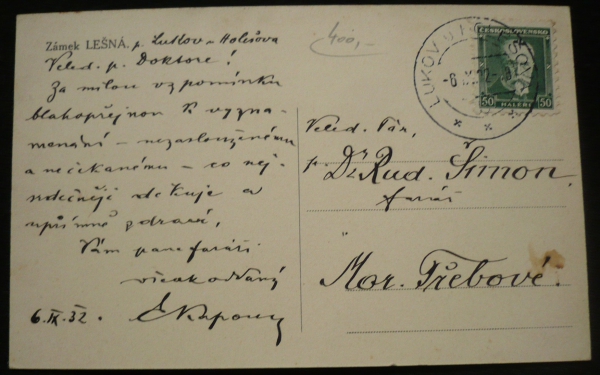 Zámek LEŠNÁ, p. Lukov u Holešova
Veled. p. Doktore!
Za milou vzpomínku
blahopřejnou k vyzna-
menání – nezaslouženému
a nečekanému – co nej-
srdečněji děkuje a
upřímně zdraví,
Vám pane faráři
vždy oddaný
6. IX. 32.
400,-
LUKOV U HOLEŠOVA
-6.IX.32-
ČESKOSLOVENSKO
50 HALÉŘŮ 50
Veled. Pán,
p. Dr Rud. Šimon,
farář
Mor. Třebové.